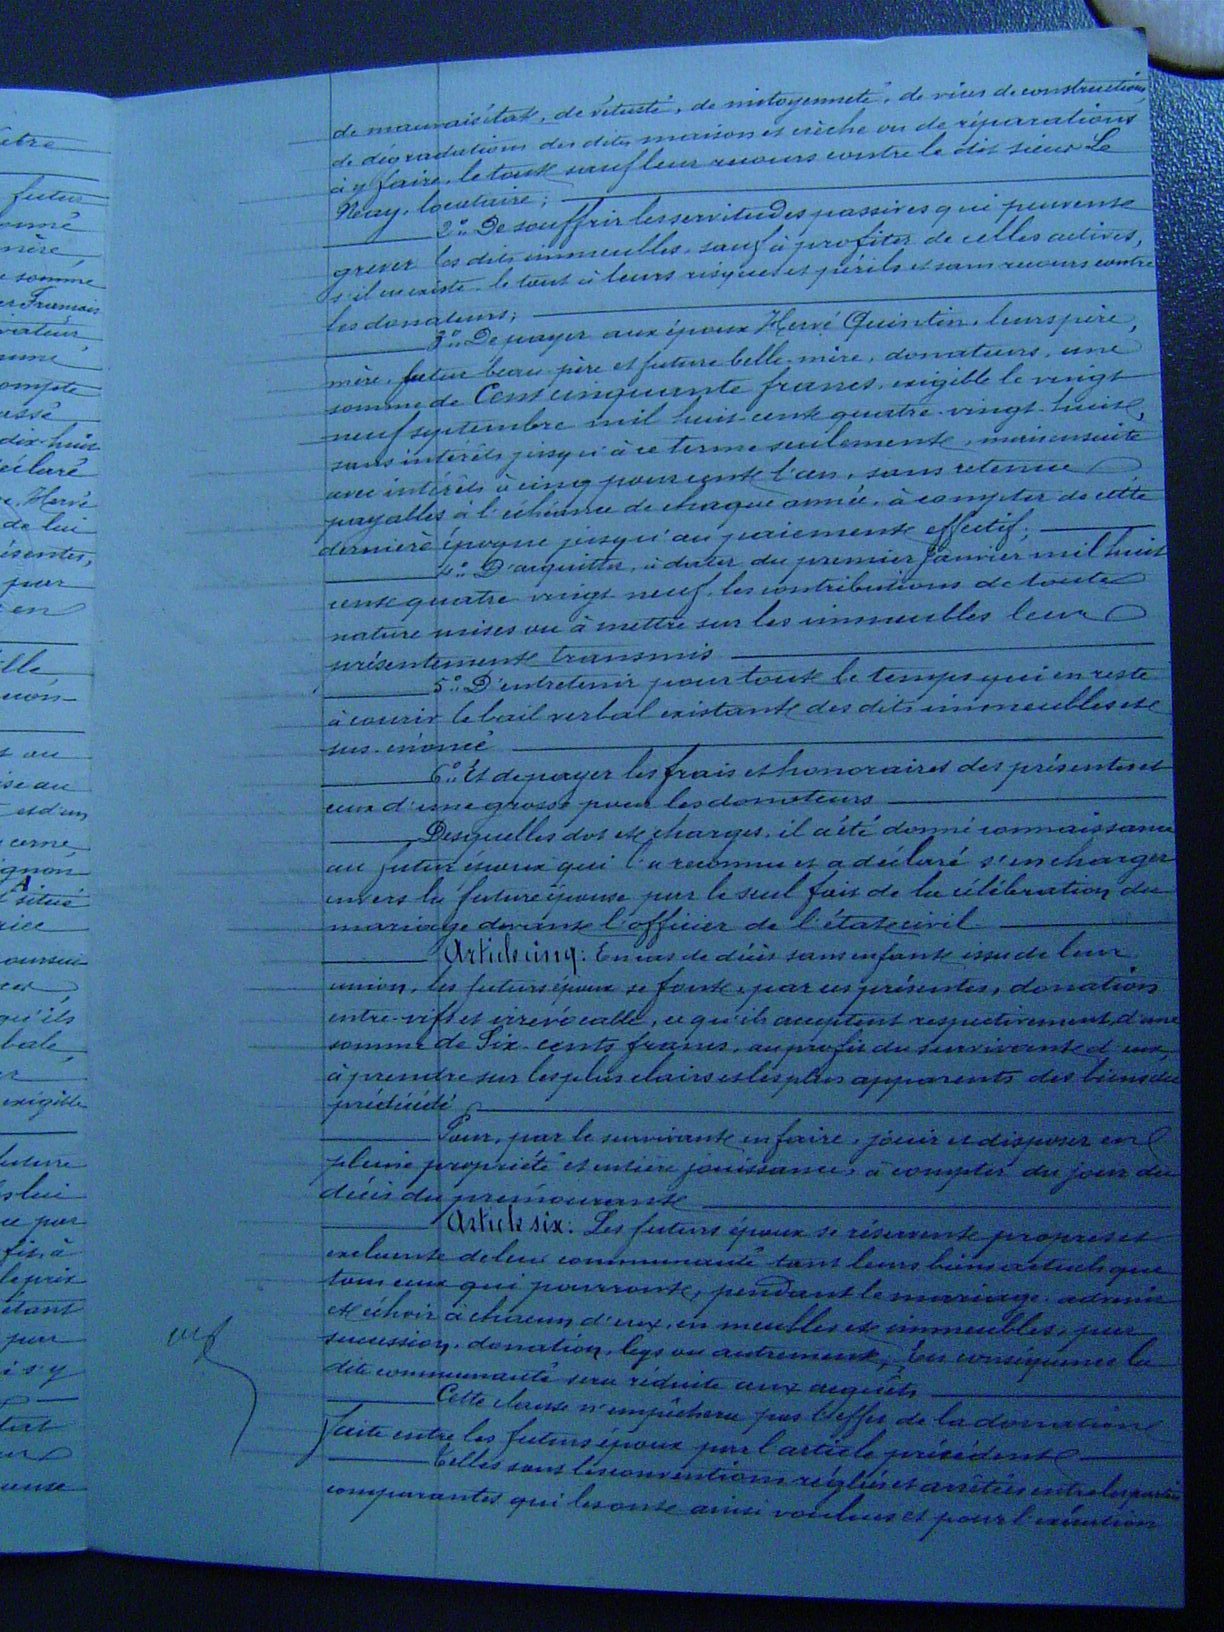 de mauvais état, de vétusté, de mitoyenneté, de vices de construction,
de dégradations des dits maison et crèche ou de réparations
à y faire, le tout sauf leur recours contre le dit sieur Le
Néay, locataire;
2° De souffrir les servitudes passives qui peuvent
grever les dits immeubles, sauf à profiter de celles actives,
s'il en existe, le tout à leurs risques et périls et sans recours contre
les donateurs;
3° De payer aux époux Hervé Quintin, leurs père,
mère, futur beau père et future belle-mère, donateurs, une
somme de Cent cinquante francs, exigible le vingt
neuf septembre mil huit-cent quatre-vingt-huit,
sans intérêts jusqu'à ce terme seulement, mais ensuite
avec intérêts à cinq pour cent l'an, sans retenue
payables à l'échéance de chaque année, à compter de cette
dernière époque jusqu'au paiement effectif;
4° D'acquitter, à dater du premier Janvier mil huit
cent quatre vingt neuf, les contributions de toute
nature mises ou à mettre sur les immeubles leur
présentement transmis
5° D'entretenir pour tout le temps qui en reste
à courir le bail verbal existant des dits immeubles et
sus-énoncé
6° Et de payer les frais et honoraires des présentes et
ceux d'une grosse pour les donateurs
Desquelles dot et charges, il a été donné connaissance
au futur époux qui l'a reconnu et a déclaré s'en charger
envers la future épouse par le seul fait de la célébration du
mariage devant l'officier de l'état civil
Article cinq: En cas de décès sans enfant issu de leur
union, les futurs époux se font, par ces présentes, donation
entre-vifs et irrévocable, ce qu'ils acceptent respectivement, d'une
somme de Six-cents francs, au profit du survivant d'eux,
à prendre sur les plus clairs et les plus apparents des biens du
prédécédé
Pour, par le survivant en faire, jouir et disposer en
pleine propriété et entière jouissance, à compter du jour du
décès du prémourant
Article six: Les futurs époux se réservent propres et
excluent de leur communauté tant leurs biens actuels que
tous ceux qui pourront, pendant le mariage, advenir
et échoir à chacun d'eux, en meubles et immeubles, par
succession, donation, legs ou autrement; En conséquence la
dite communauté sera réduite aux acquêts
Cette clause n'empêchera pas l'effet de la donation
faite entre les futurs époux par l'article précédent
Telles sont les conventions réglées et arrêtées entre les parties
comparantes qui les ont ainsi voulues et pour l'exécution